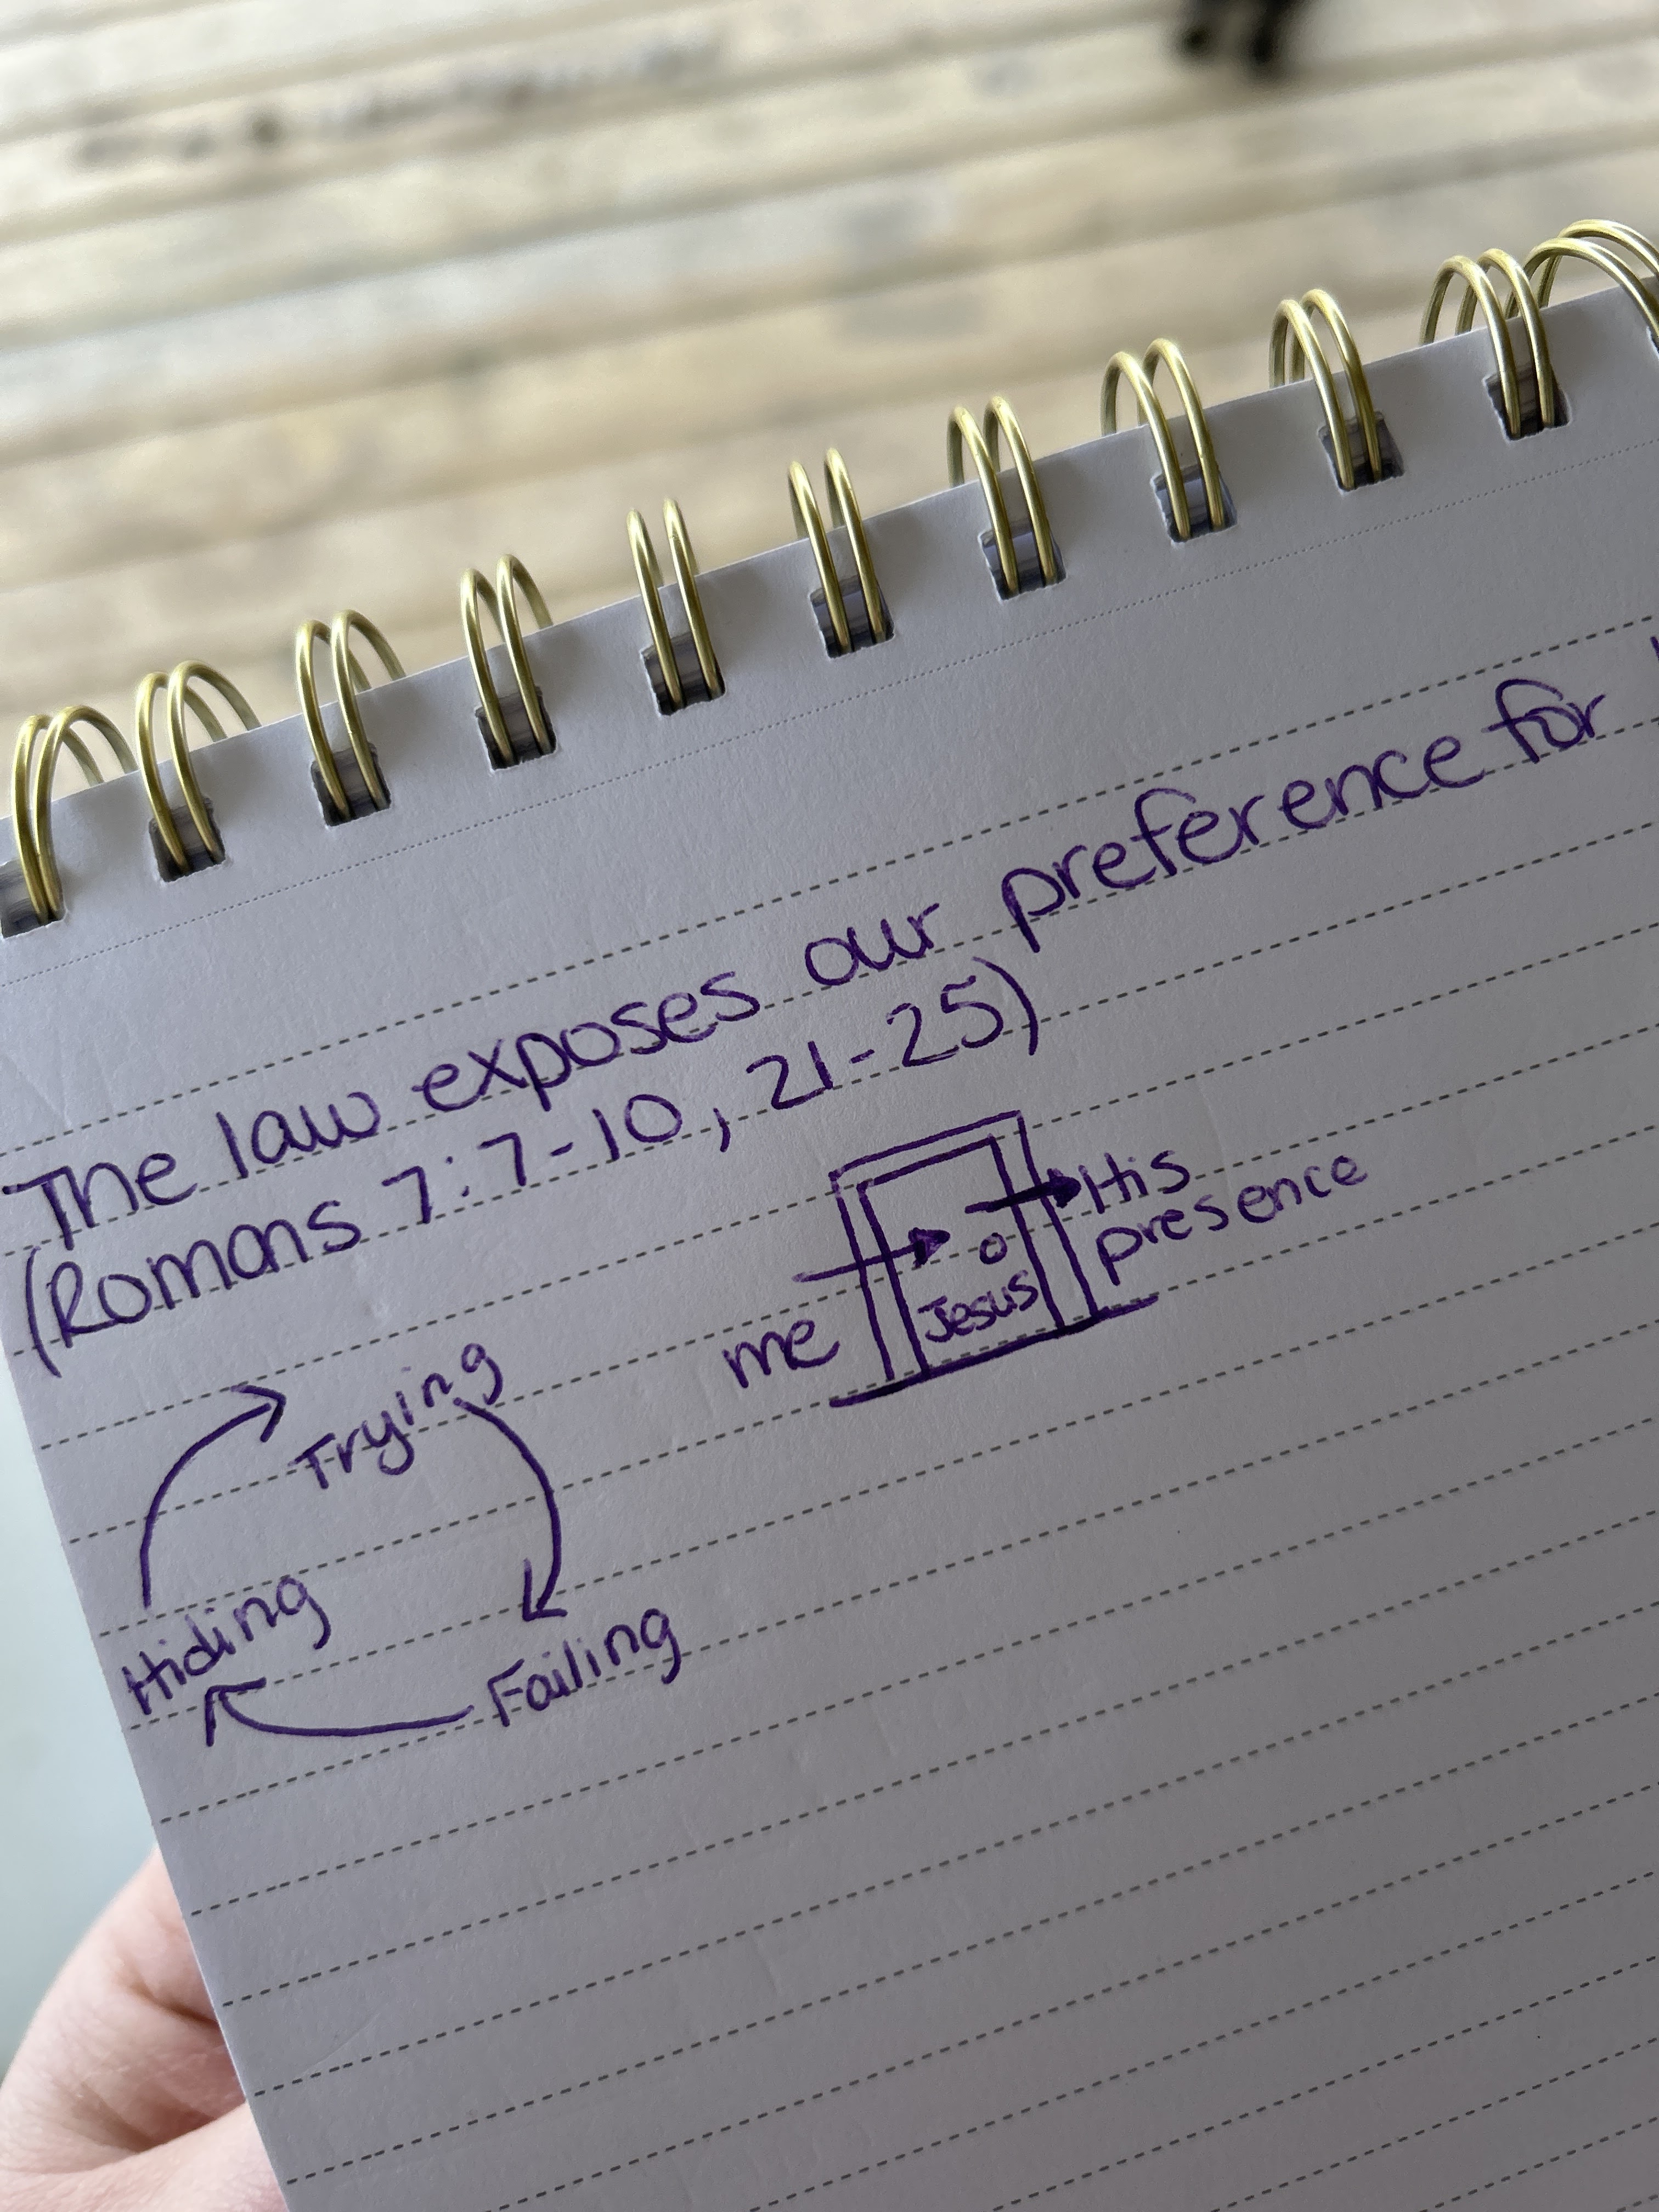 The law exposes our preference for
(Romans 7:7-10, 21-25)
His
presence
Jesus
me
Trying
Hiding
Failing